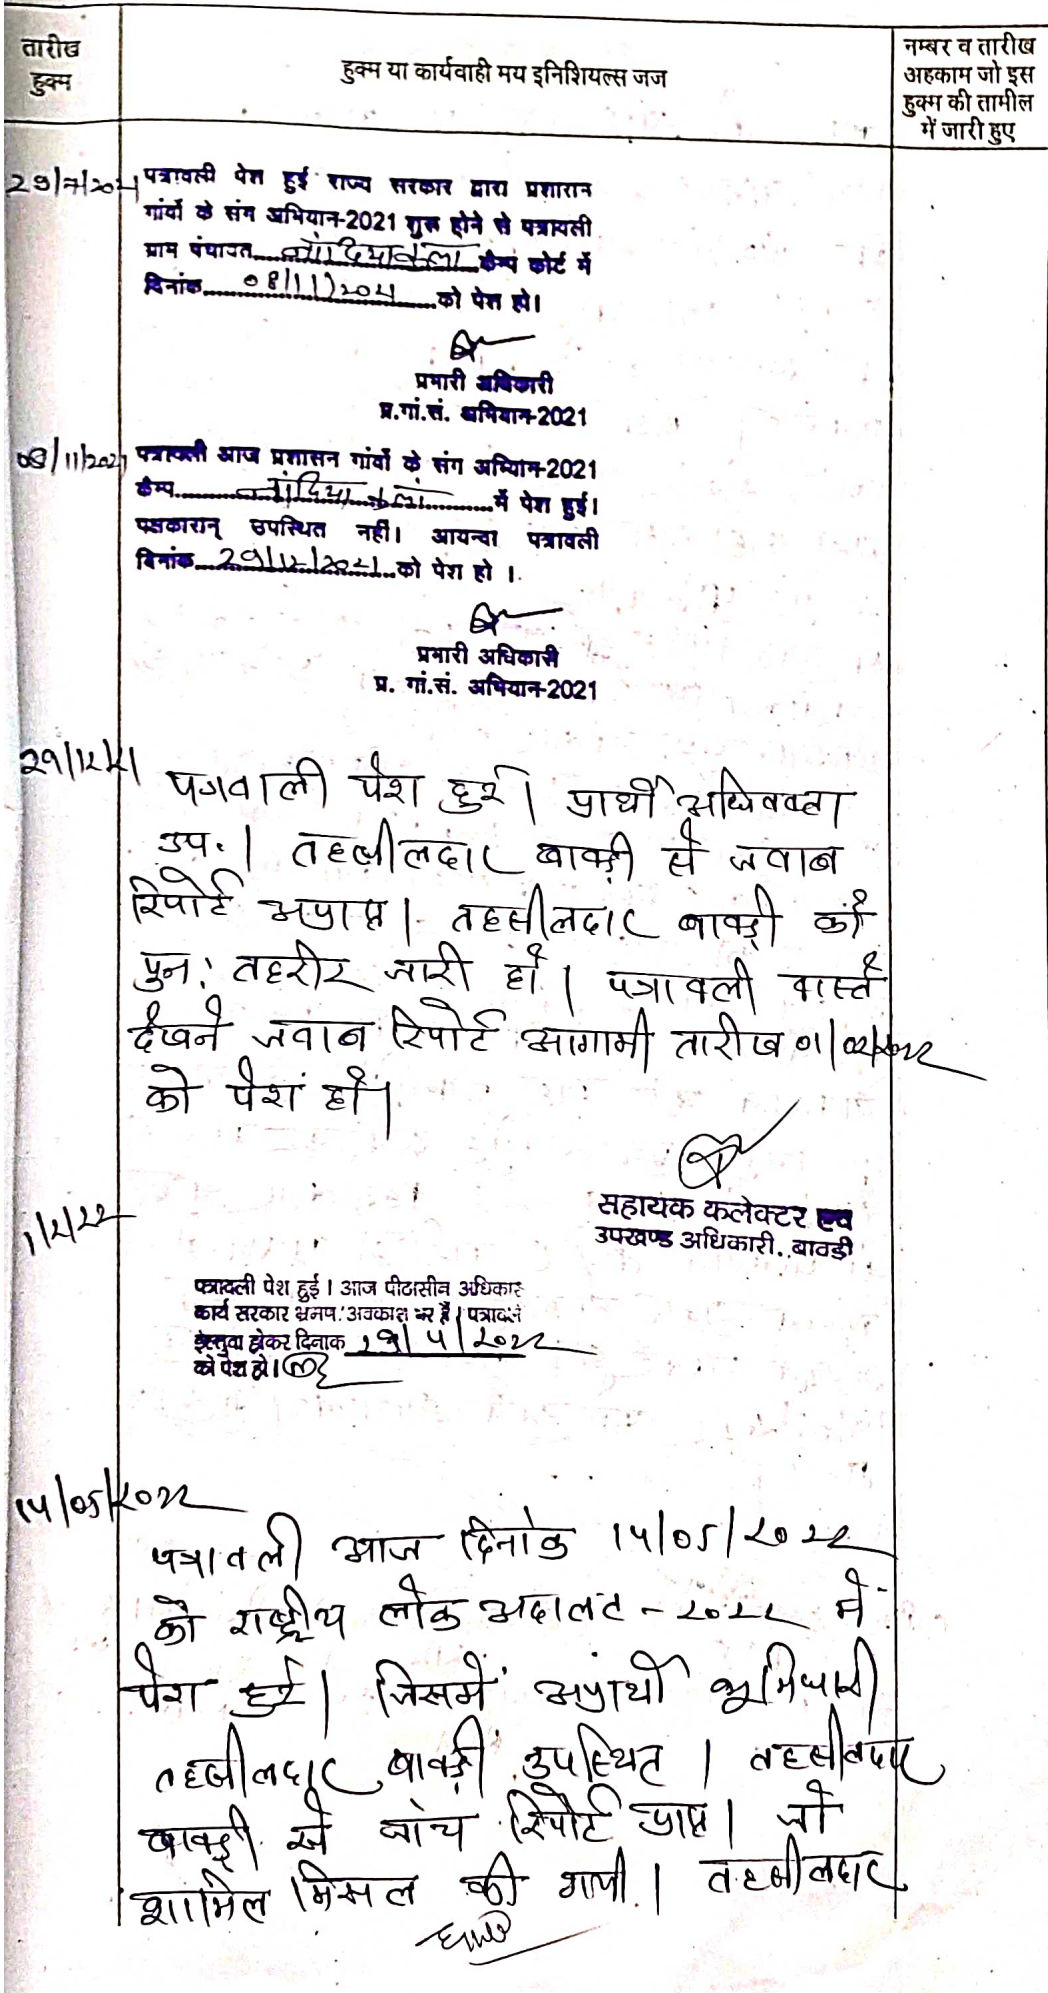 तारीख
हुक्म
हुक्म या कार्यवाही मय इनिशियल्स जज
नम्बर व तारीख
अहकाम जो इस
हुक्म की तामील
में जारी हुए
29/7/2021
पत्रावली पेश हुई राज्य सरकार द्वारा प्रशासन
गांवों के संग अभियान-2021 शुरू होने से पत्रावली
ग्राम पंचायत कैम्प कोर्ट में
दिनांक 08/11/2021 को पेश हो।
प्रभारी अधिकारी
प्र.गां.सं. अभियान-2021
08/11/2021
पत्रावली आज प्रशासन गांवों के संग अभियान-2021
कैम्प में पेश हुई।
पक्षकारान् उपस्थित नहीं। आयन्दा पत्रावली
दिनांक 29/12/2021 को पेश हो ।
प्रभारी अधिकारी
प्र. गां.सं. अभियान-2021
29/12/21
पत्रावली पेश हुई। प्रार्थी अधिवक्ता
उप.। तहसीलदार बावड़ी से जवाब
रिपोर्ट अप्राप्त। तहसीलदार बावड़ी को
पुन: तहरीर जारी हो। पत्रावली वास्ते
देखने जवाब रिपोर्ट आगामी तारीख 01/02/2022
को पेश हो।
सहायक कलेक्टर एवं
उपखण्ड अधिकारी, बावडी
1/2/22
पत्रावली पेश हुई। आज पीठासीन अधिकार
कार्य सरकार भ्रमण/अवकाश पर है। पत्रावली
होकर दिनांक /4/2022
को पेश हो।
14/05/2022
पत्रावली आज दिनांक 14/05/2022
को राष्ट्रीय लोक अदालत - 2022 में
पेश हुई। जिसमें अप्रार्थी भूमिधारी
तहसीलदार बावड़ी उपस्थित। तहसीलदार
बावड़ी से जांच रिपोर्ट प्राप्त। जो
शामिल मिसल की गयी। तहसीलदार